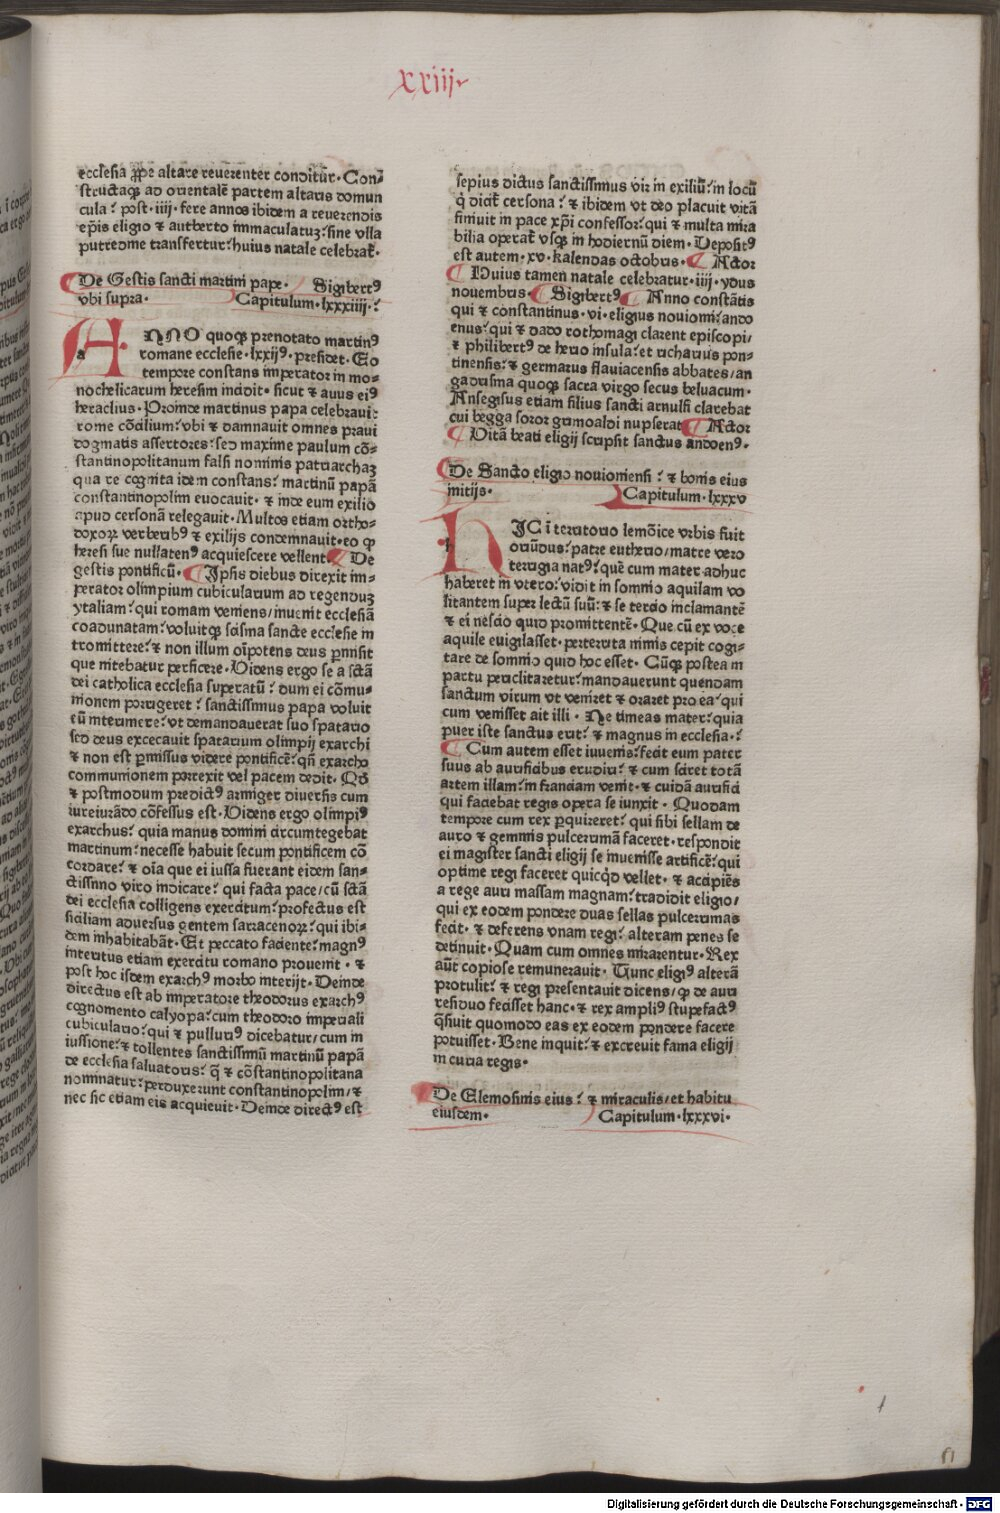 xxiij
ecclesia ꝓpe altare reuerenter conditur̄. Con⸗
structaqꝫ ad orientalē partem altaris domun
cula? post .iiij. fere annos ibidem a reuerendis
ep̄is eligio & autberto immaculatuꝫ? sine vlla
putredine transfertur? huius natale celebrat᷑.
De Gestis sancti martini pape. Sigibertꝰ
vbi supra. Capitulum .lxxxiiii.?
ANNO quoqꝫ prenotato martinꝰ
romane ecclesie .lxxijꝰ. presidet. Eo
tempore constans imperator in mo⸗
nochelicarum heresim incidit. sicut & auus eiꝰ
heraclius. Proinde martinus papa celebrauit
rome cōcilium? vbi & damnauit omnes praui
dogmatis assertores? sed maxime paulum cō⸗
stantinopolitanum falsi nominis patriarchaꝫ
qua re cognita idem constans? martinū papā
constantinopolim euocauit. & inde eum exilio
apud cersonā relegauit. Multos etiam ortho⸗
doxoꝝ verberibꝰ & exilijs condemnauit. eo ꝙ
heresi sue nullatenꝰ acquiescere vellent. De
gestis pontificū. Ipsis diebus direxit im⸗
perator olimpium cubicularium ad regenduꝫ
ytaliam? qui romam veniens, inuenit ecclesiā
coadunatam? voluitqꝫ scisma sancte ecclesie in
tromittere? & non illum oīpotens deus ꝑmisit
que nitebatur perficere. Videns ergo se a sctā
dei catholica ecclesia superatū? dum ei cōmu⸗
nionem porrigeret? sanctissimus papa voluit
eū interimere? vt demandauerat suo spatario
sed deus excecauit spatarium olimpij exarchi
& non est ꝑmissus videre pontificē? qn̄ exarcho
communionem porrexit vel pacem dedit. Qd̄
& postmodum predictꝰ armiger diuersis cum
iureiurādo cōfessus est. Videns ergo olimpiꝰ
exarchus? quia manus domini circumtegebat
martinum? necesse habuit secum pontificem cō
cordare? & oīa que ei iussa fuerant eidem san⸗
ctissimo viro indicare? qui facta pace, cū sctā
dei ecclesia colligens exercitum? profectus est
siciliam aduersus gentem sarracenoꝝ? qui ibi⸗
dem inhabitabāt. Et peccato faciente? magnꝰ
interitus etiam exercitu romano prouenit. &
post hoc isdem exarchꝰ morbo interijt. Deinde
directus est ab imperatore theodorus exarchꝰ
cognomento calyopa? cum theodoro imperiali
cubiculario? qui & pulluriꝰ dicebatur, cum in
iussione? & tollentes sanctissimū martinū papā
de ecclesia saluatoris? q̄ & cōstantinopolitana
nominatur? perduxerunt constantinopolim, &
nec sic etiam eis acquieuit. Deinde directꝰ est
sepius dictus sanctissimus vir in exiliū? in locū
q̇ dicit᷑ cersona? & ibidem vt deo placuit vitā
finiuit in pace xp̄i confessor? qui & multa mira
bilia operat᷑ vsqꝫ in hodiernū diem. Depositꝰ
est autem .xv. kalendas octobris. Actor
Huius tamen natale celebratur .iiij. ydus
nouembris. Sigibertꝰ Anno constātis
qui & constantinus .vi. eligius nouiomi? ando
enus? qui & dado rothomagi clarent episcopi,
& philibertꝰ de herio insula? et richarius pon⸗
tinensis? & germarus flauiacensis abbates, an
gadrisma quoqꝫ sacra virgo secus beluacum.
Ansegisus etiam filius sancti arnulfi clarebat
cui begga soror grimoaldi nupserat. Actor
Vitā beati eligij scripsit sanctus andoenꝰ.
De Sancto eligio nouiomensi? & bonis eius
initijs. Capitulum .lxxxv
HIC ī territorio lemōice vrbis fuit
oriūdus? patre eutherio, matre vero
terrigia natꝰ? quē cum mater adhuc
haberet in vtero? vidit in somnio aquilam vo
litantem super lectū suū? & se tercio inclamantē
& ei nescio quid promittentē. Que cū ex voce
aquile euigilasset. perterrita nimis cepit cogi⸗
tare de somnio quid hoc esset. Cūqꝫ postea in
partu periclitaretur? mandauerunt quendam
sanctum virum vt veniret & oraret pro ea? qui
cum venisset ait illi. Ne timeas mater? quia
puer iste sanctus erit? & magnus in ecclesia.?
Cum autem esset iuuenis? fecit eum pater
suus ab aurificibus erudiri? & cum sciret totā
artem illam? in franciam venit. & cuidā aurifici
qui faciebat regis opera se iunxit. Quodam
tempore cum rex ꝑquireret? qui sibi sellam de
auro & gemmis pulcerrimā faceret. respondit
ei magister sancti eligij se inuenisse artificē? qui
optime regi faceret quicq̇d vellet. & accipiēs
a rege auri massam magnam? tradidit eligio,
qui ex eodem pondere duas sellas pulcerrimas
fecit. & deferens vnam regi? alteram penes se
detinuit. Quam cum omnes mirarentur. Rex
aūt copiose remunerauit. Tunc eligiꝰ alterā
protulit? & regi presentauit dicens, ꝙ de auri
residuo fecisset hanc. & rex ampliꝰ stupefactꝰ
q̇siuit quomodo eas ex eodem pondere facere
potuisset. Bene inquit? & excreuit fama eligij
in curia regis.
De Elemosinis eius? & miraculis, et habitu
eiusdem. Capitulum .lxxxvi.
Digitalisierung gefördert durch die Deutsche Forschungsgemeinschaft - DFG